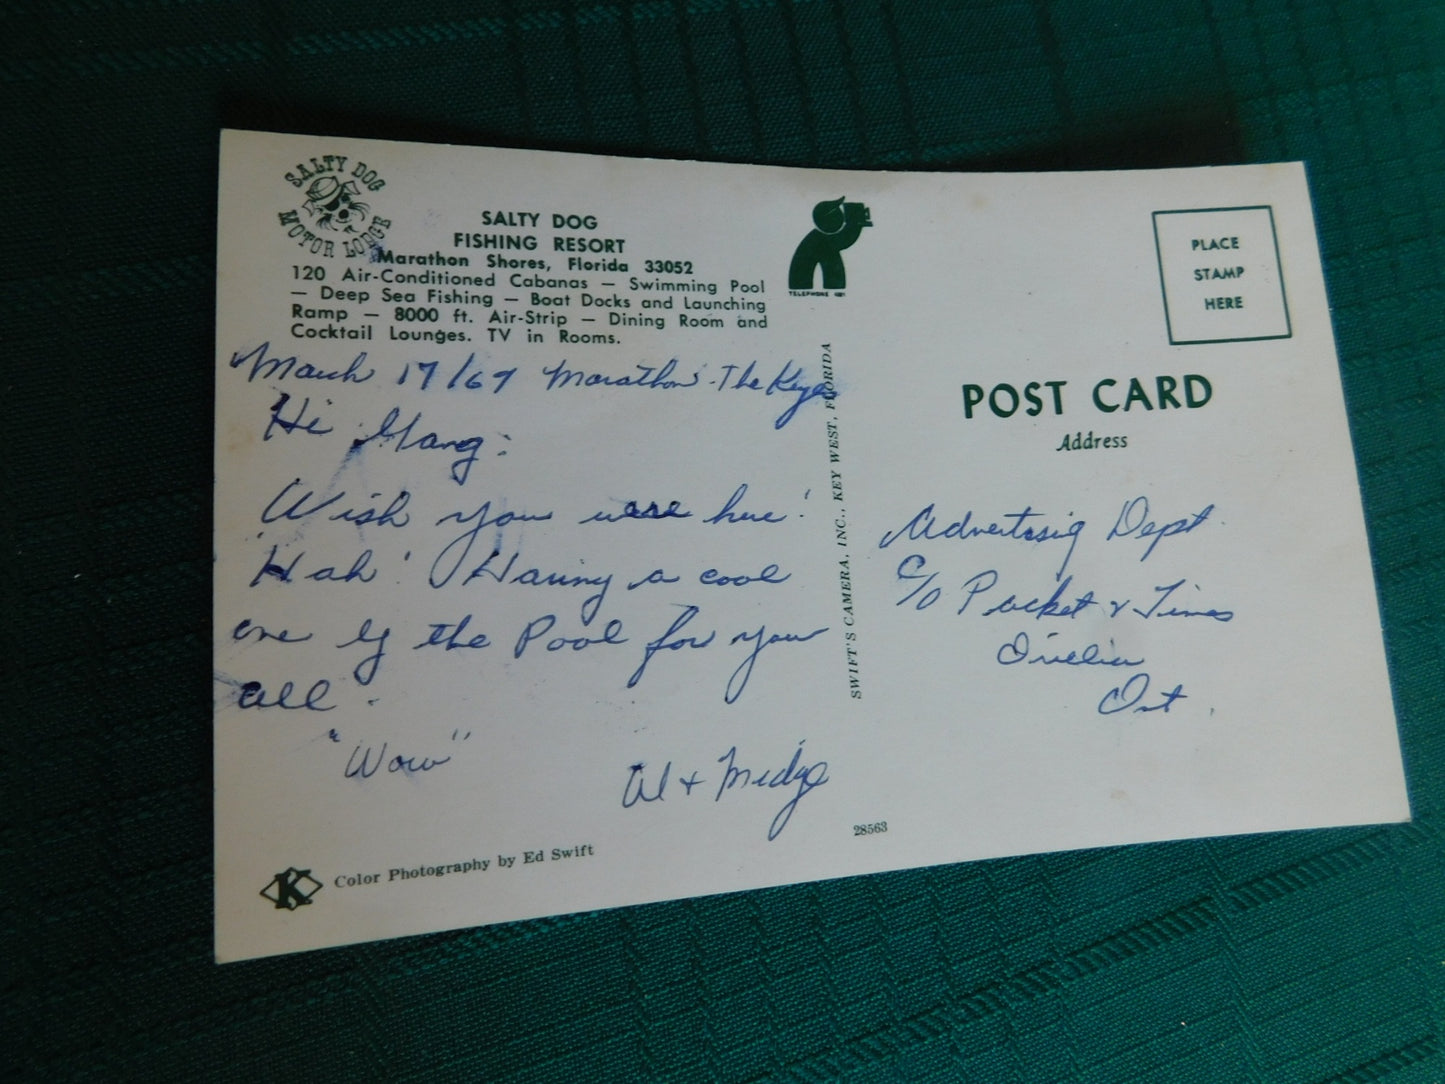 SALTY DOG
MOTOR LODGE
SALTY DOG
FISHING RESORT
Marathon Shores, Florida 33052
120 Air-Conditioned Cabanas — Swimming Pool
— Deep Sea Fishing — Boat Docks and Launching
Ramp — 8000 ft. Air-Strip — Dining Room and
Cocktail Lounges. TV in Rooms.
March 17/67 Marathon - The Keys
Hi Gang:
Wish you were here!
Hah! Having a cool
one by the Pool for you
all.
"Wow"
Al & Midge
Color Photography by Ed Swift
K
TELEPHONE
SWIFT'S CAMERA, INC., KEY WEST, FLORIDA
28563
PLACE
STAMP
HERE
POST CARD
Address
Advertising Dept.
c/o Packet & Times
Orillia
Ont.